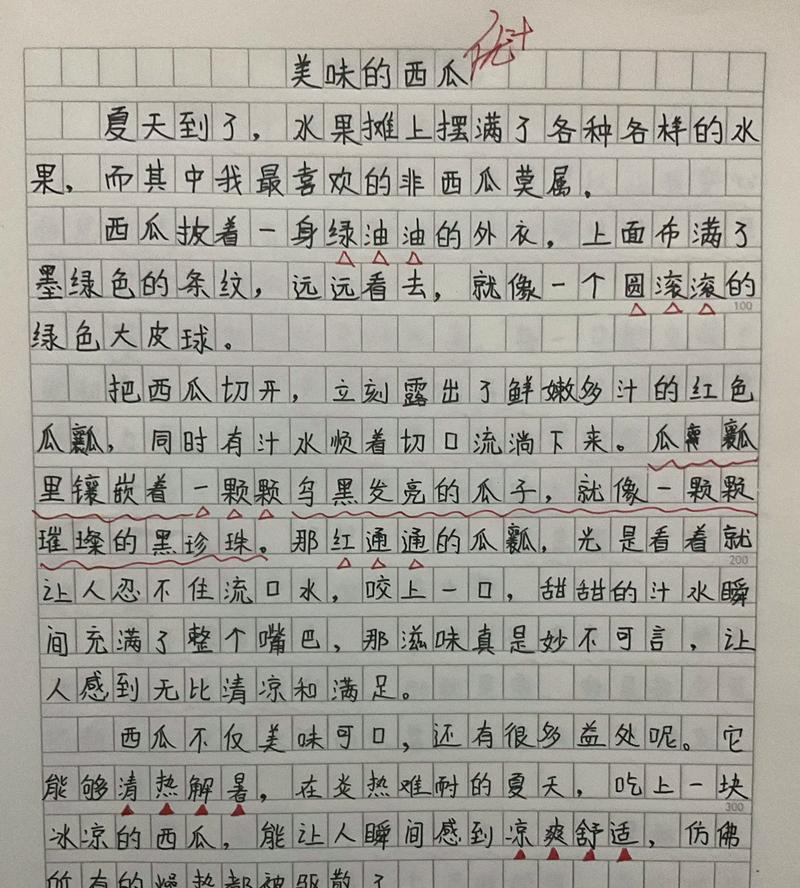 美味的西瓜
优+
夏天到了，水果摊上摆满了各种各样的水
果，而其中我最喜欢的非西瓜莫属。
西瓜披着一身绿油油的外衣，上面布满了
墨绿色的条纹，远远看去，就像一个圆滚滚的
100
绿色大皮球。
把西瓜切开，立刻露出了鲜嫩多汁的红色
瓜瓤，同时有汁水顺着切口流淌下来。瓜瓤
里镶嵌着一颗颗乌黑发亮的瓜子，就像一颗颗
璀璨的黑珍珠。那红通通的瓜瓤，光是看着就
200
让人忍不住流口水，咬上一口，甜甜的汁水瞬
间充满了整个嘴巴，那滋味真是妙不可言，让
人感到无比清凉和满足。
西瓜不仅美味可口，还有很多益处呢。它
能够清热解暑，在炎热难耐的夏天，吃上一块
300
冰凉的西瓜，能让人瞬间感到凉爽舒适，仿佛
所有的燥热都被驱散了